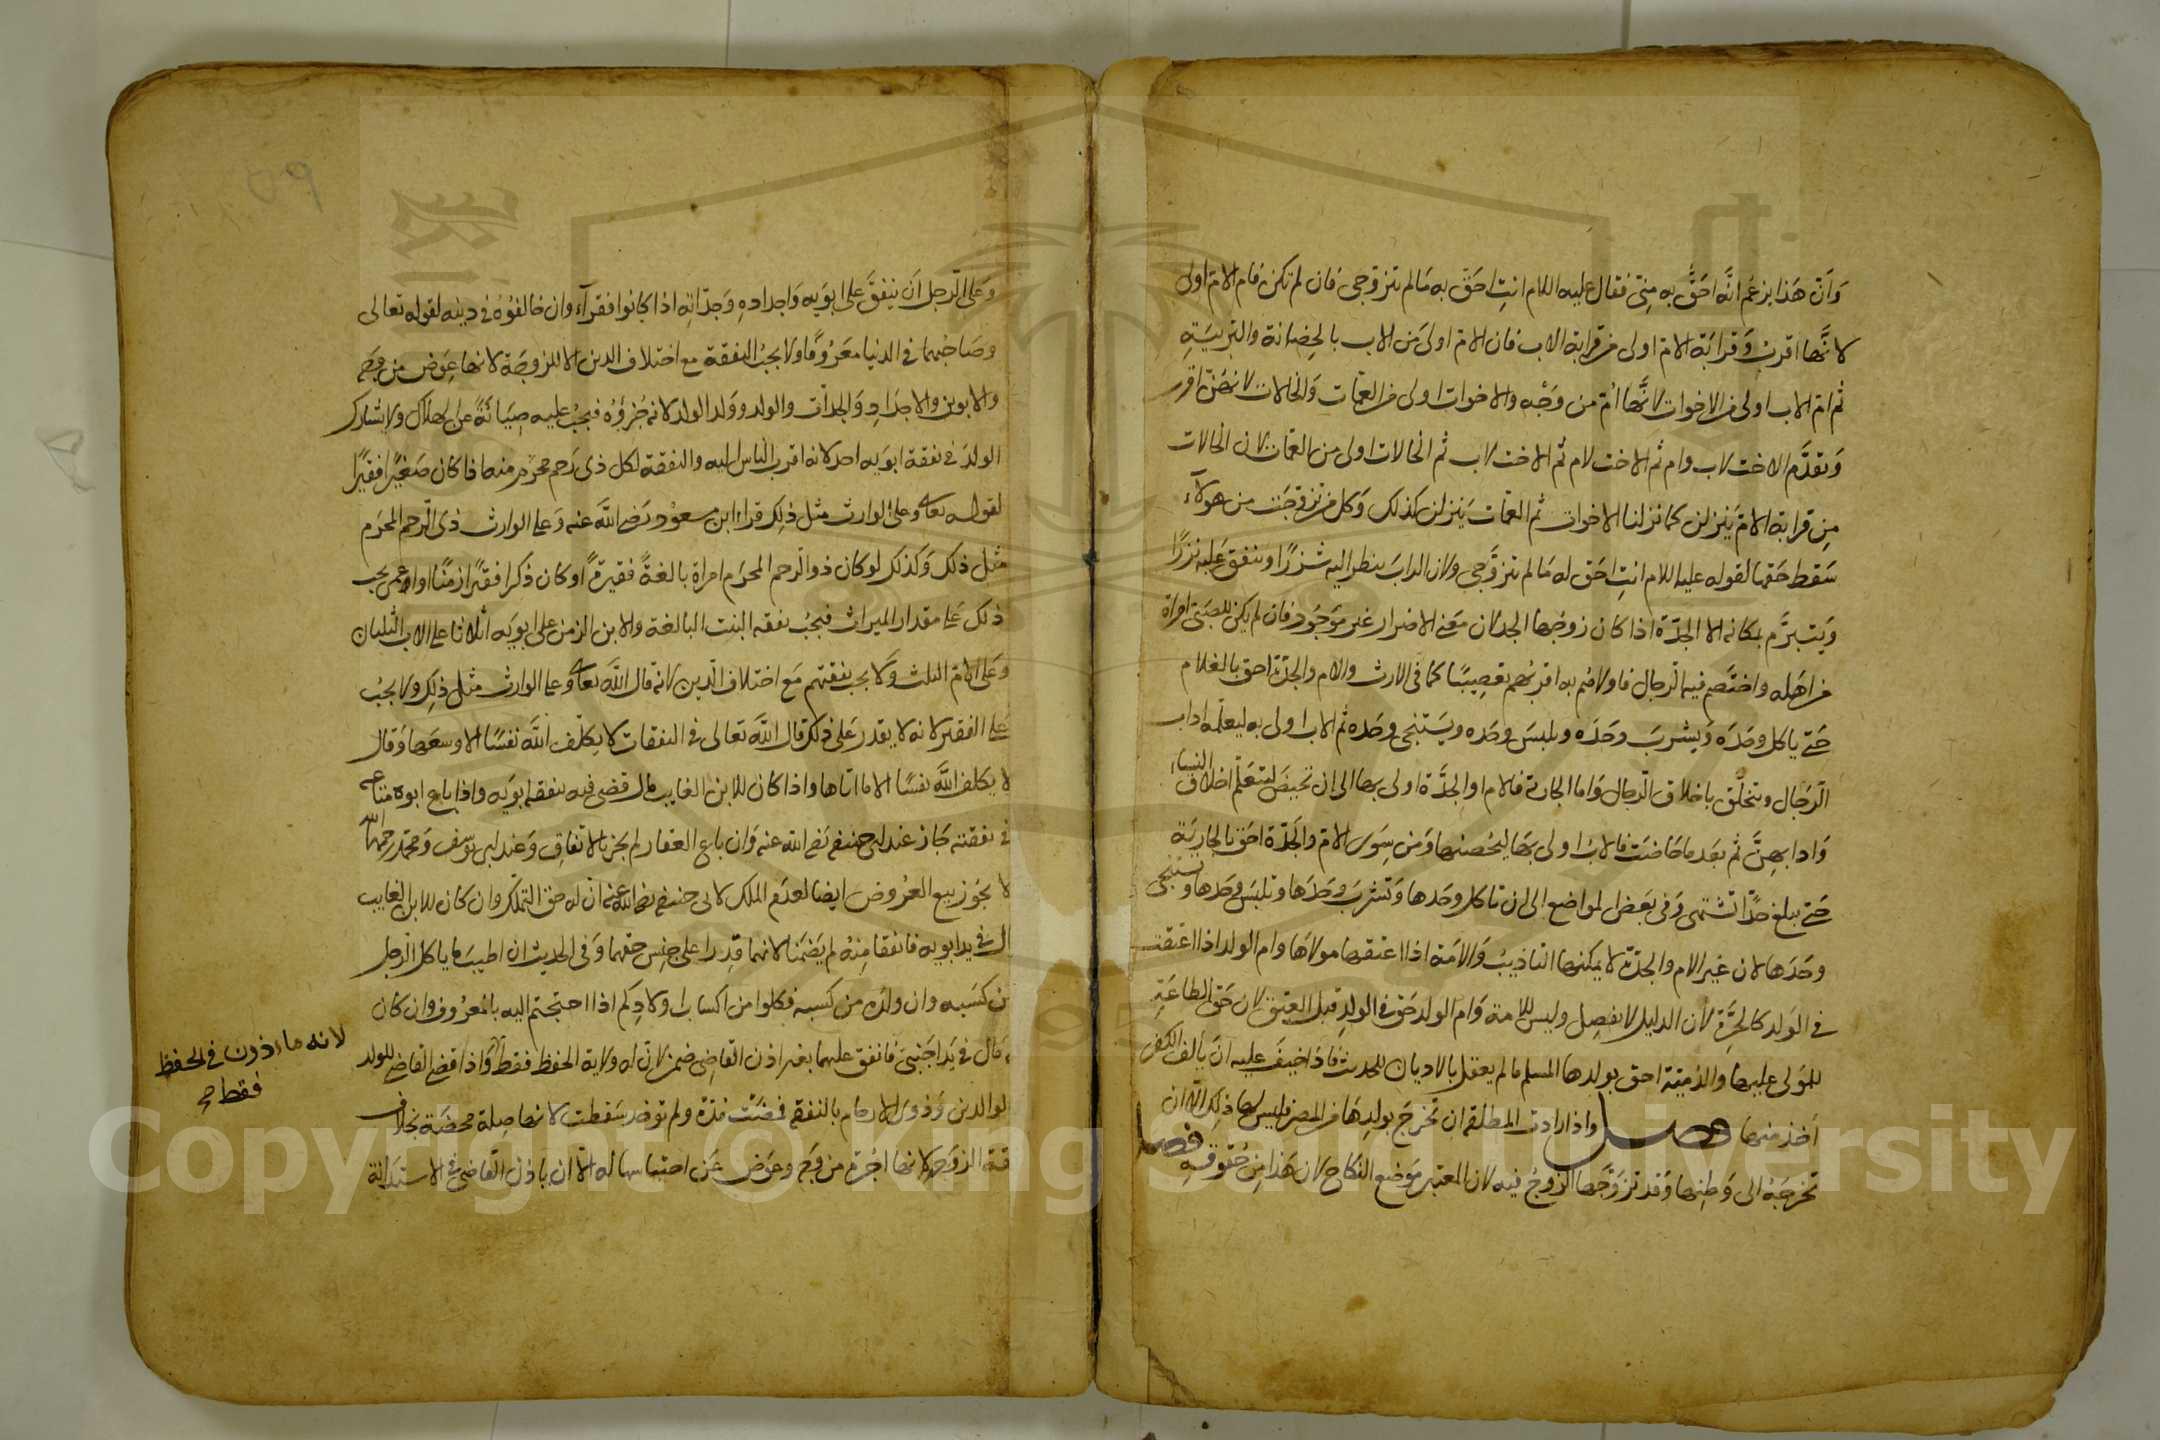 وان هذا يزعم انه احق به مني فقال عليه السلام انت احق به ما لم تتزوجي فان لم تكن فام الام اولى
لانها اقرب وقرابة الام اولى من قرابة الاب فان الام اولى من الاب بالحضانة والتربية
ثم ام الاب اولى من الاخوات لانها ام من وجه والاخوات اولى من العمات والخالات لانهن اقرب
وتقدم الاخت لاب وام ثم الاخت لام ثم الاخت لاب ثم الخالات اولى من العمات لان الخالات
من قرابة الام ينزلن كما نزلنا الاخوات ثم العمات ينزلن كذلك وكل من تزوجت من هولاء
سقط حقها لقوله عليه السلام انت احق له ما لم تتزوجي ولان الراب ينظر اليه شزرا وينفق عليه نزرا
ويتبرم بمكانه الا الجدة اذا كان زوجها الجد لان معنى الاضرار غير موجود فان لم يكن للصبي امراة
من اهله واختصم فيه الرجال فاولاهم به اقربهم تعصيبا كما في الارث والام والجدة احق بالغلام
حتى ياكل وحده ويشرب وحده ويلبس وحده ويستنجي وحده ثم الاب اولى به ليعلمه اداب
الرجال ويتخلق باخلاق الرجال واما الجارية فالام او الجدة اولى بها الى ان تحيض لتتعلم اخلاق النساء
وادابهن ثم بعد ما حاضت فالاب اولى بها ليحصنها ومن سوى الام والجدة احق بالجارية
حتى تبلغ حدا تشتهى وفي بعض المواضع الى ان تاكل وحدها وتشرب وحدها وتلبس وحدها وتستنجي
وحدها لان غير الام والجدة لا يمكنها التاديب والامة اذا اعتقها مولاها وام الولد اذا اعتقت
في الولد كالحرة لان الدليل لا يفصل وليس للامة وام الولد حق في الولد قبل العتق لان حق الطاعة
للمولى عليها والذمية احق بولدها المسلم ما لم يعقل بالاديان للحديث فاذا خيف عليه ان يالف الكفر
اخذ منها فصل واذا ارادت المطلقة ان تخرج بولدها من المصر فليس لها ذلك الا ان
تخرجه الى وطنها وقد تزوجها الزوج فيه لان المعتبر موضع النكاح لان هذا من حقوقه فصل
وعلى الرجل ان ينفق على ابويه واجداده وجداته اذا كانوا فقراء وان خالفوه في دينه لقوله تعالى
وصاحبهما في الدنيا معروفا ولا يجب النفقة مع اختلاف الدين الا للزوجة لانها عوض من وجه
والابوين والاجداد والجدات والولد وولد الولد لانه جزؤه فيجب عليه صيانة عن الهلاك ولا يشارك
الولد في نفقة ابويه احد لانه اقرب الناس اليه والنفقة لكل ذي رحم محرم منه اذا كان صغيرا فقيرا
لقوله تعالى وعلى الوارث مثل ذلك قراء ابن مسعود رضي الله عنه وعلى الوارث ذي الرحم المحرم
مثل ذلك وكذلك لو كان ذو الرحم المحرم امراة بالغة فقيرة او كان ذكرا فقيرا زمنا او اعمى يجب
ذلك على مقدار الميراث فيجب نفقة البنت البالغة والابن الزمن على ابويه اثلاثا على الاب الثلثان
وعلى الام الثلث ولا يجب نفقتهم مع اختلاف الدين لانه قال الله تعالى وعلى الوارث مثل ذلك ولا يجب
على الفقير لانه لا يقدر على ذلك قال الله تعالى في النفقات لا يكلف الله نفسا الا وسعها وقال
لا يكلف الله نفسا الا ما اتاها واذا كان للابن الغايب مال قضي فيه بنفقة ابويه واذا باع ابوه متاعه
في نفقته جاز عند ابي حنيفة رضي الله عنه وان باع العقار لم يجز بالاتفاق وعند ابي يوسف ومحمد رحمهما الله
لا يجوز بيع العروض ايضا لعدم الملك لابي حنيفة رضي الله عنه ان له حق التملك وان كان للابن الغايب
مال في يد ابويه فانفقا منه لم يضمنا لانهما قدرا على جنس حقهما وفي الحديث ان اطيب ما ياكل الرجل
من كسبه وان ولده من كسبه فكلوا من اكساب اولادكم اذا احتجتم اليه بالمعروف وان كان
مال في يد اجنبي فانفق عليهما بغير اذن القاضي ضمن لان له ولاية الحفظ فقط واذا قضى القاضي للولد
والوالدين وذوي الارحام بالنفقة فمضت مدة ولم توخذ سقطت لانها صلة محضة بخلاف
نفقة الزوجة لانها اجرة من وجه وعوض عن احتباسها له الا ان ياذن القاضي في الاستدانة
لانه ماذون في الحفظ
فقط صح
٥٩
Copyright © King Saud University